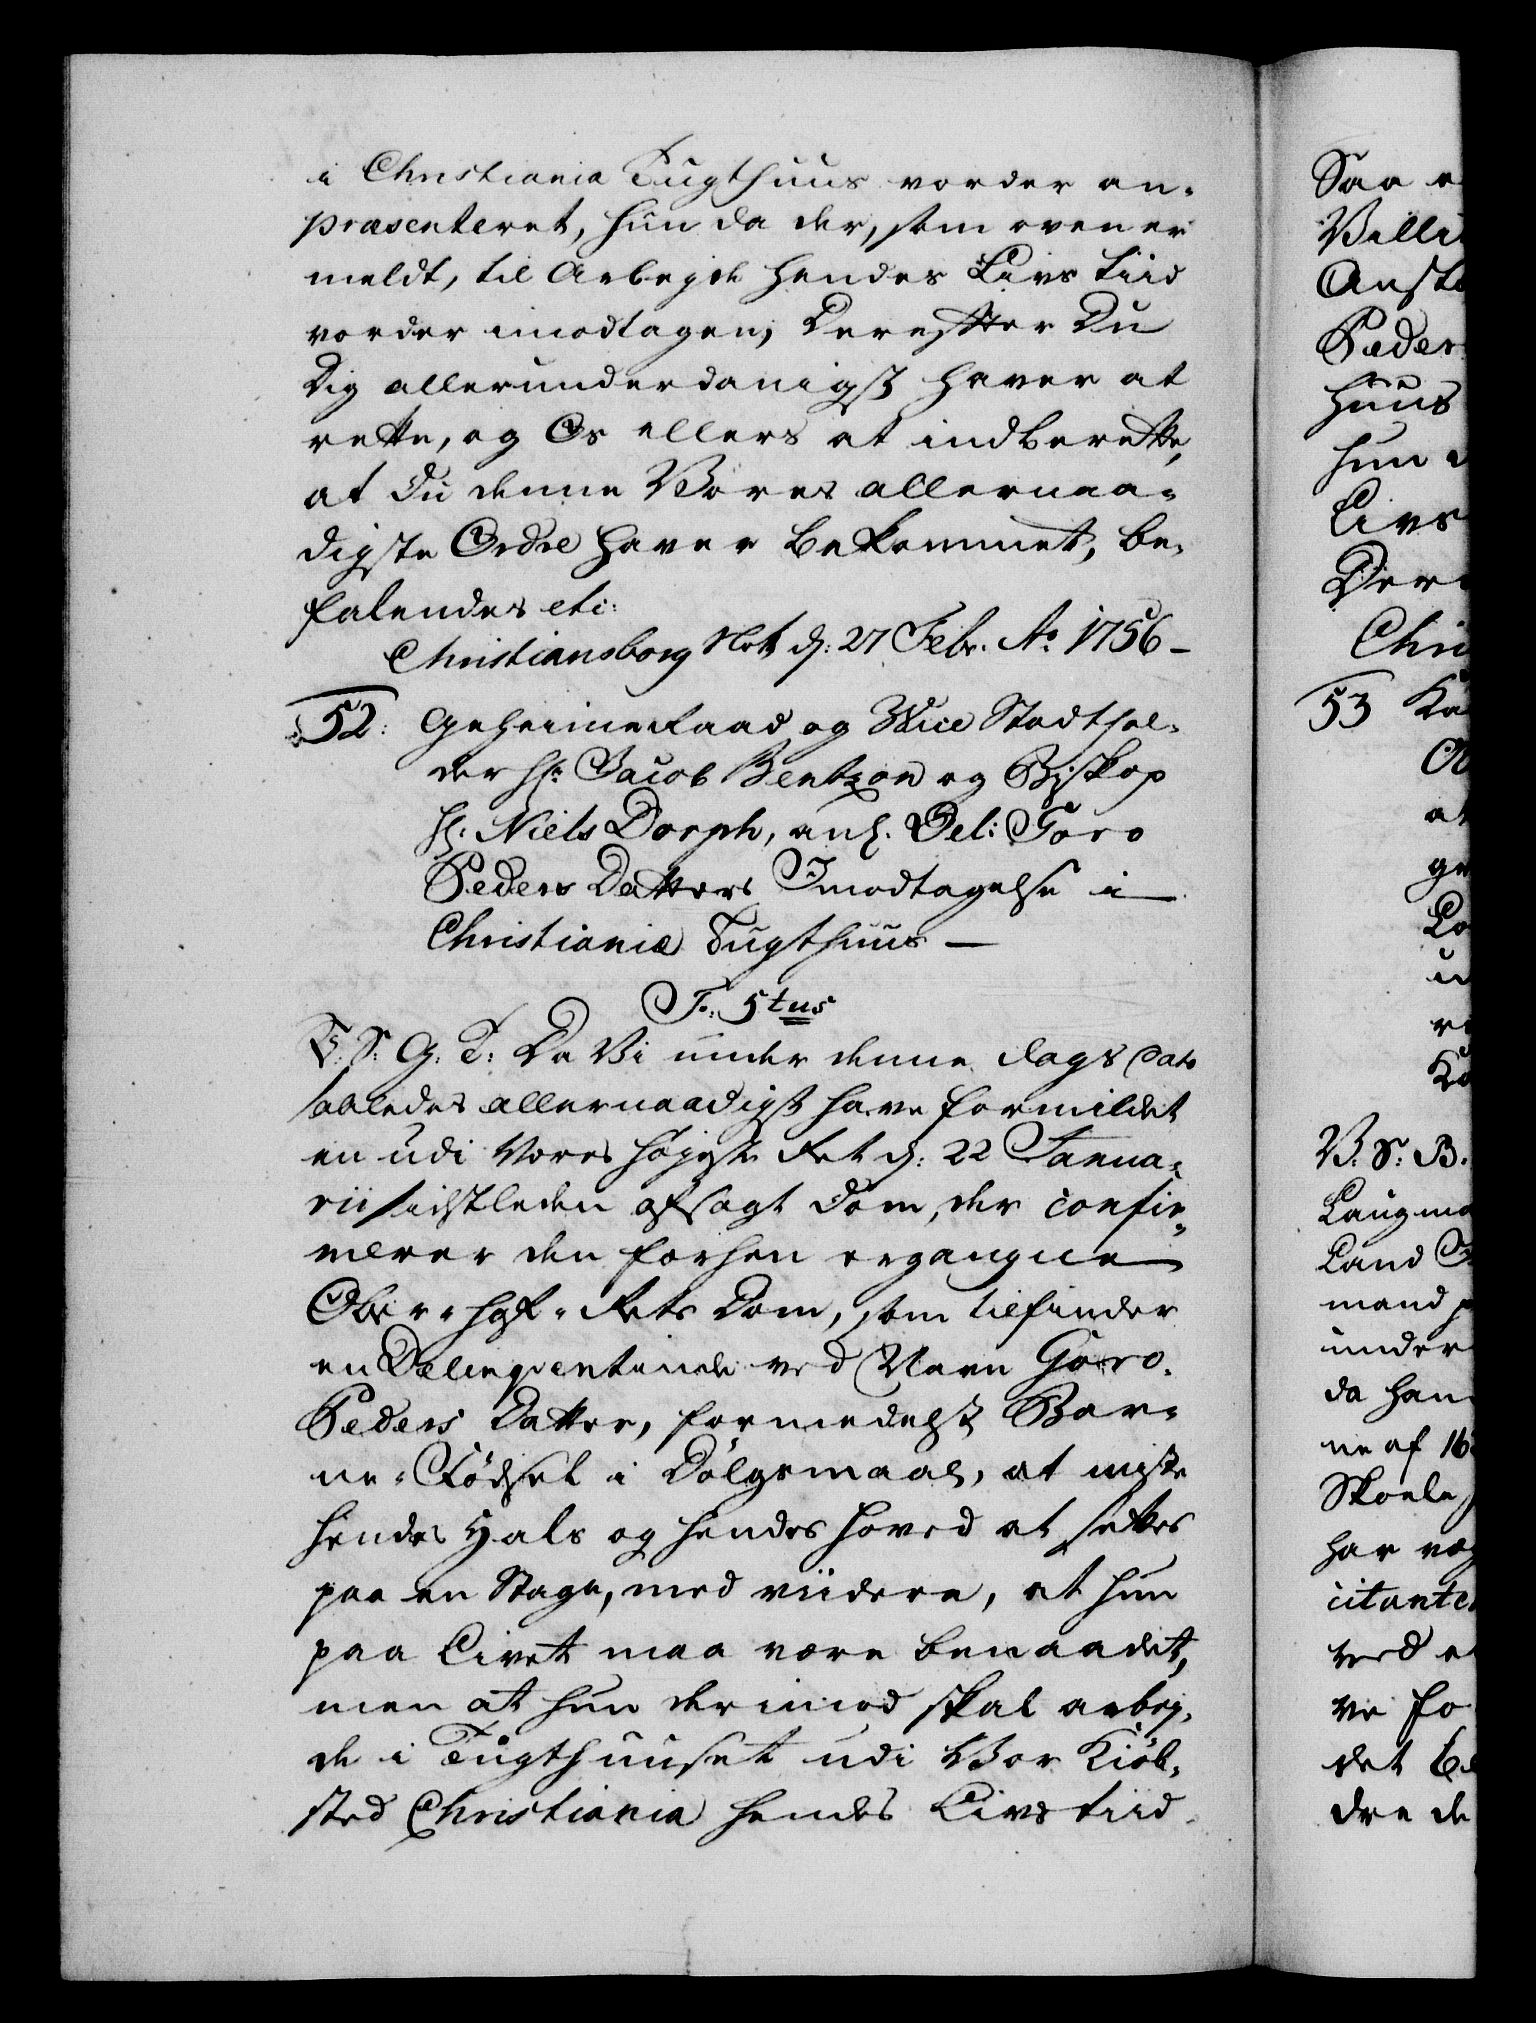 i Christiania Tugthuus vorder an-
præsenteret, hun da der, som oven er
meldt, til Arbejde hendes Livs tiid
vorder imodtagen; Derefter Du
dig allerunderdanigst haver at
rette, og Os ellers at indberette,
at du denne Vores allernaa-
digste Ordre haver bekommet, be-
falendes etc:
Christiansborg Slott d: 27 Febr. Ao 1756 -
52: Geheimeraad og Vice Stadthol-
der Hr: Jacob Bentzon og Biskop
Hr. Niels Dorph, anl. Del: Goro
Peders Datters Imodtagelse i
Christiania Tugthuus —
F. 5tus
V: S: G: T: Da Vi under denne dags dato
saaledes allernaadigst have formildet
en udi Vores højeste Ret d: 22 Janua-
rii sidstleden afsagt dom, der confir-
merer den forhen ergangne
Ober-Hof-Rets Dom, som tilfinder
en Delinqventinde ved Navn Goro
Peders Datter, formedelst Bar-
ne-Fødsel i Dølgsmaal, at miste
hendes Hals og hendes hoved at settes
paa en Stage, med viidere, at hun
paa Livet maa være benaadet,
men at hun derimod skal arbej-
de i Tugthuuset udi Vor Kiøb-
sted Christiania hendes Livs tiid.
Saa
Peder
huus
hun
Livs
53
V: S: B.
Laugma
Land
mand
under
da han
ne af 16
Skoele
har
citante
ved
ve fo
det
dre de